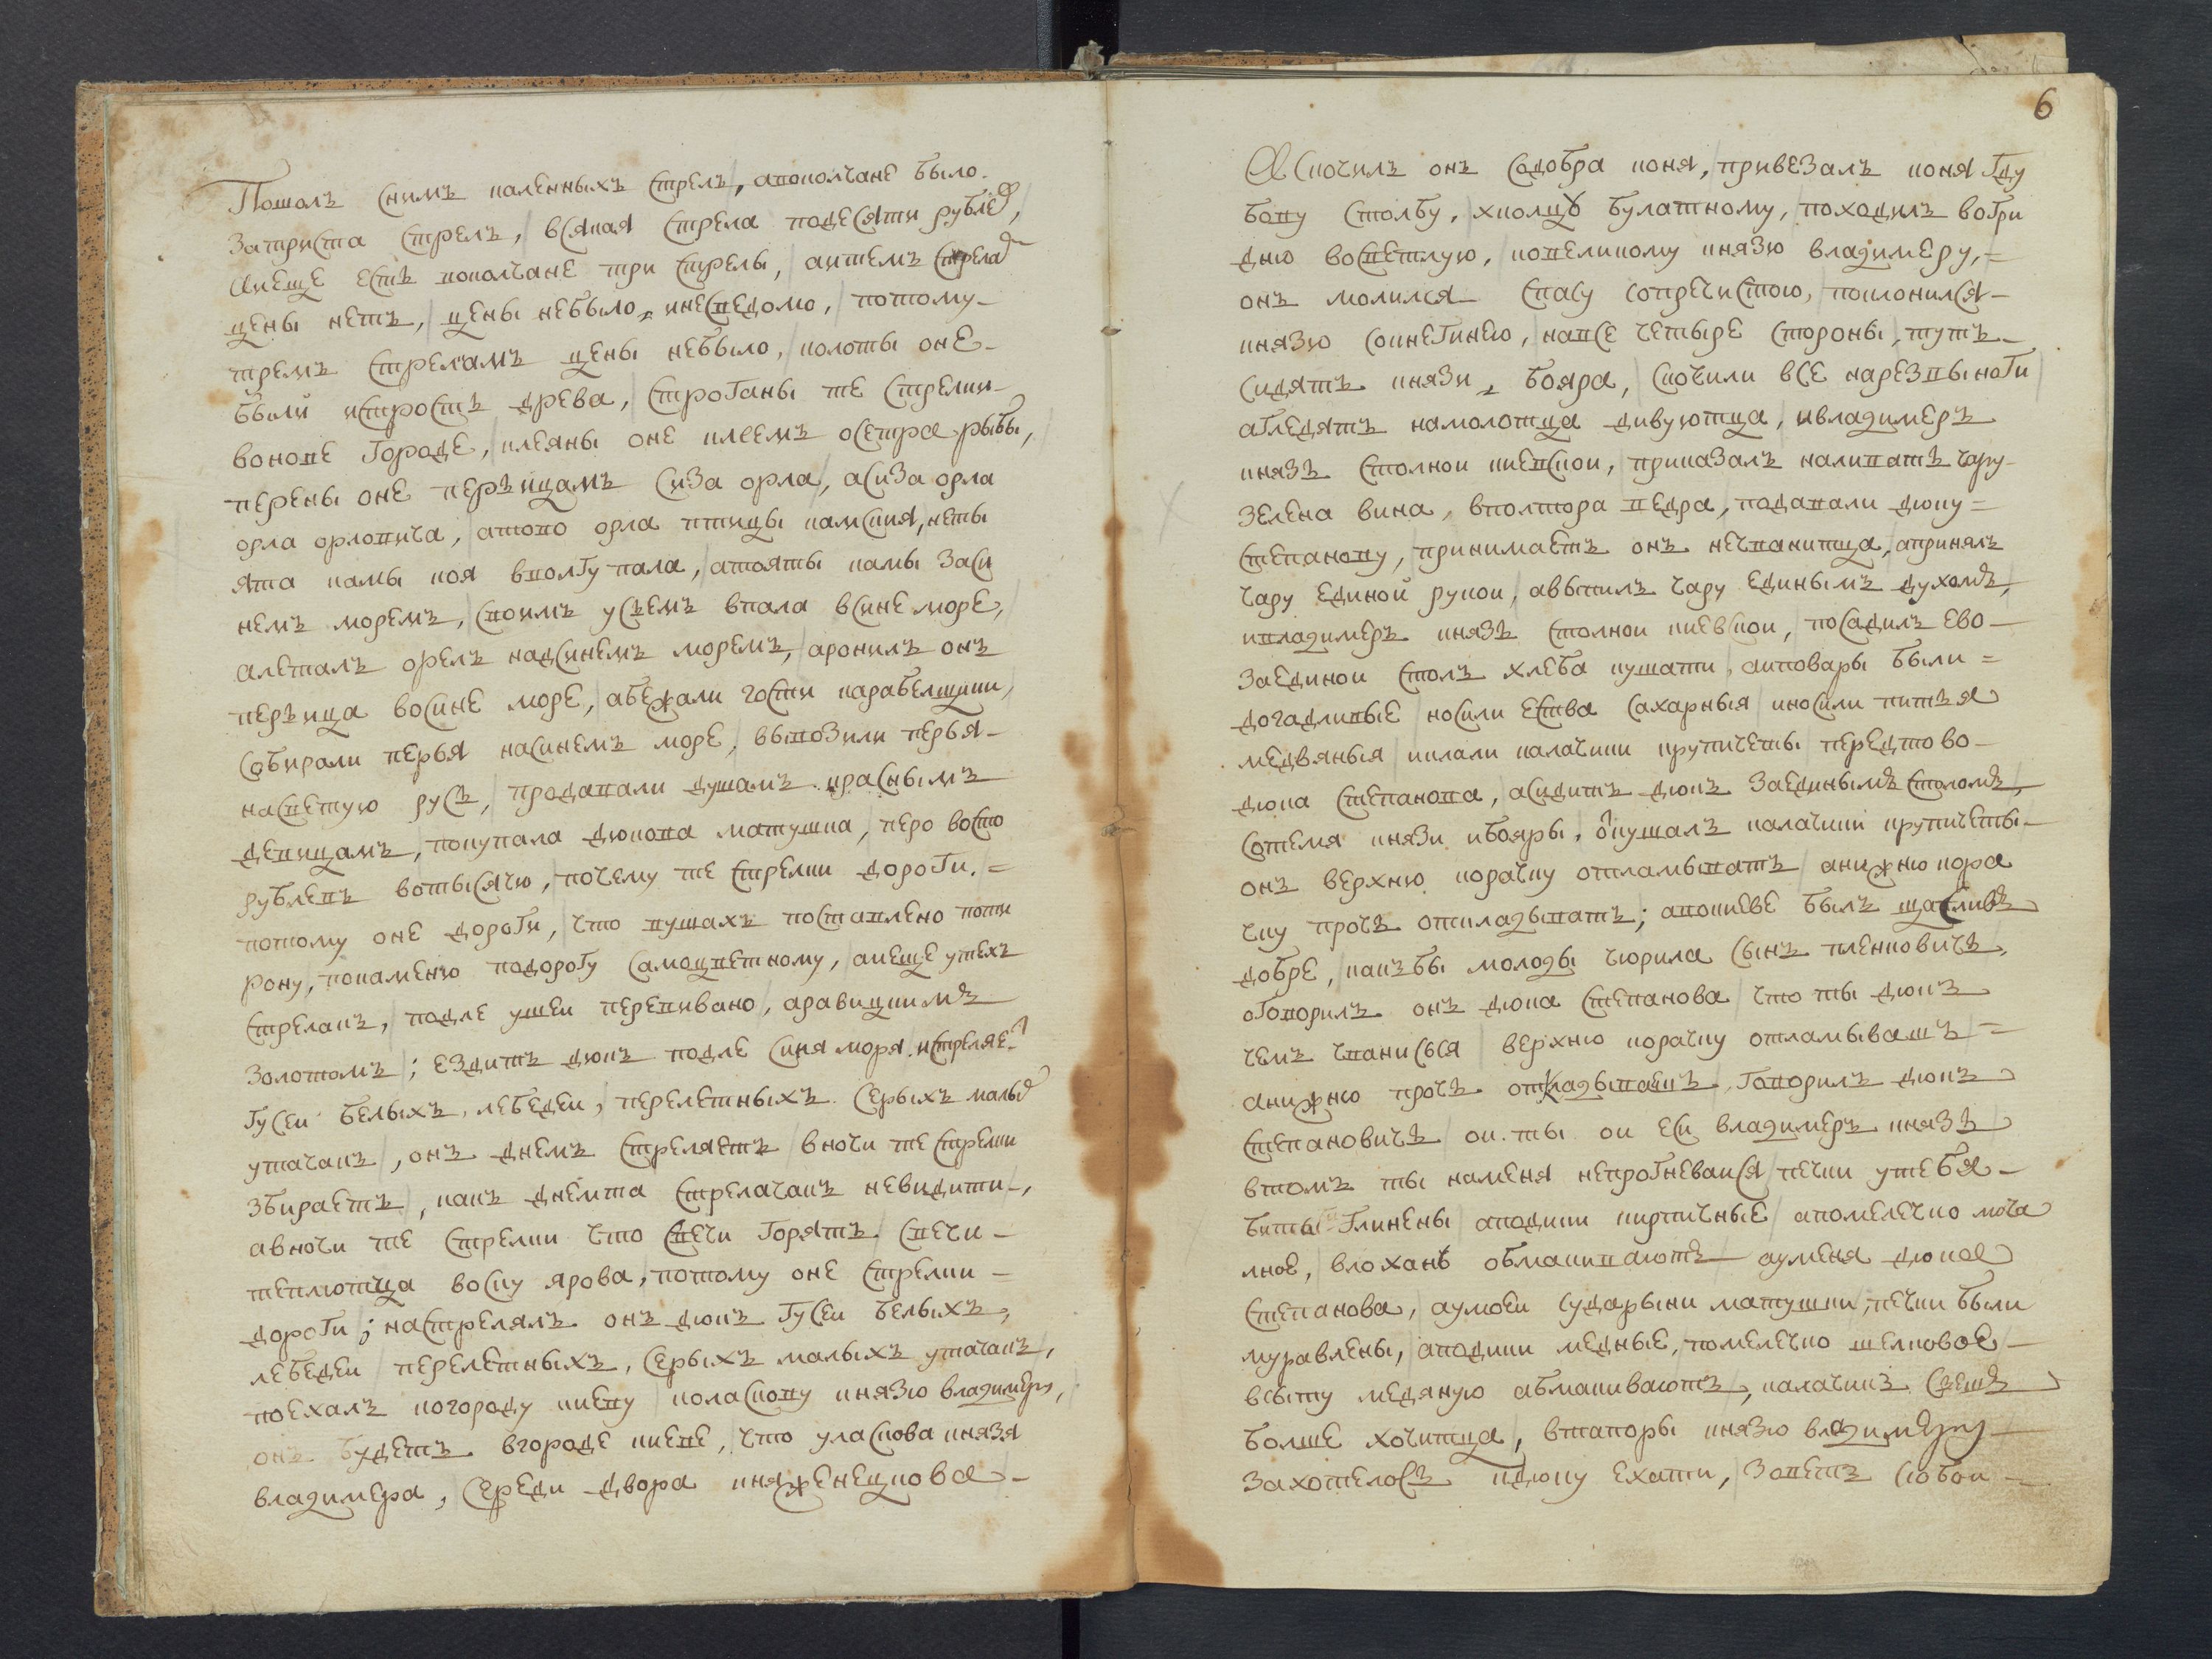 Пошолъ снимъ каленныхъ стрелъ, аповолчане было.
Затриста стрелъ, всякая стрела подесяти рублев,
Аиеще есть вколчане три стрелы, аитемъ стрелав
цены нетъ, цены небыло, инесведомо, потому
тремъ стреламъ цены небыло, колоты оне
были истрость древа, строганы те стрелки
вонове городе, клеяны оне клеемъ осетра рыбы,
перены оне перьицамъ сиза орла, асиза орла
орла орловича, атово орла птицы камския, неты
ята камы коя вволгу пала, атояты камы заси
немъ моремъ, своимъ усьемъ впала всине море,
алеталъ орелъ надсинемъ моремъ, аронилъ онъ
перьица восине море, абежали гости карабелщики,
собирали перья насинемъ море, вывозили перья
насветую русь, продавали душамъ краснымъ
девицамъ, покупала дюкова матушка, перо восто
рублевъ вотысячю, почему те стрелки дороги.
потому оне дороги, что вушахъ поставлено поти
рону, покаменю подорогу самоцветному, аиеще утехъ
стрелакъ, подле ушеи перевивано, аравицкимъ
золотомъ; ездитъ дюкъ подле синя моря. истреляет
гусеи белыхъ, лебедеи, перелетныхъ. серыхъ малых
утачакъ, онъ днемъ стреляетъ вночи те стрелки
збираетъ, какъ днемта стрелачакъ невидити,
авночи те стрелки что свечи горятъ. свечи
теплютца воску ярова, потому оне стрелки
дороги; настрелялъ онъ дюкъ гусеи белыхъ,
лебедеи перелетныхъ, серыхъ малыхъ утачакъ,
поехалъ когороду киеву коласкову князю владимеру,
онъ будетъ вгороде киеве, что уласкова князя
владимера, середи двора княженецкова
6
А скочилъ онъ содобра коня, привезалъ коня гду
бову столбу, хколцу булатному, походилъ вогри
дню восветлую, ковеликому князю владимеру,
онъ молился спасу сопречистою, поклонился
князю сокнегинею, навсе четыре стороны, тутъ
сидятъ князи, бояра, скочили все нарезвы ноги
агледятъ намолотца дивуютца, ивладимеръ
князь столнои киевскои, приказалъ наливать чару
зелена вина, вполтора ведра, подавали дюку
степанову, принимаетъ онъ нечванитца, апринялъ
чару единой рукои, авыпилъ чару единымъ духомъ,
ивладимеръ князь столнои киевскои, посадилъ ево
заединои столъ хлеба кушати, аиповары были
догадливые носили ества сахарныя иносили питья
медвяныя иклали калачики крупичеты передтово
дюка степанова, асидитъ дюкъ заединымъ столомъ,
сотемя князи ибояры, откушалъ калачики крупичеты
онъ верхню корачку отламыватъ анижню кора
чку прочь откладыватъ; авокиеве былъ щасливъ
добре, какъ бы молоды чюрила сынъ пленковичь
оговорилъ онъ дюка степанова что ты дюкъ
чемъ чванисься верхню корачку отламывашъ
анижню прочь откладываешъ. говорилъ дюкъ
степановичь ои. ты ои еси владимеръ князь
втомъ ты наменя непрогневаися печки утебя
биты глинены аподики кирпичные апомелечко моча
лное, влохань обмакиваютъ ауменя дюка
степанова, аумоеи сударыни матушки, печки были
муравлены, аподики медные, помелечко шелковое
всыту медяную абмакиваютъ, калачикъ съешъ
болше хочитца, втапоры князю владимеру
захотелось кдюку ехати, зоветъ собои